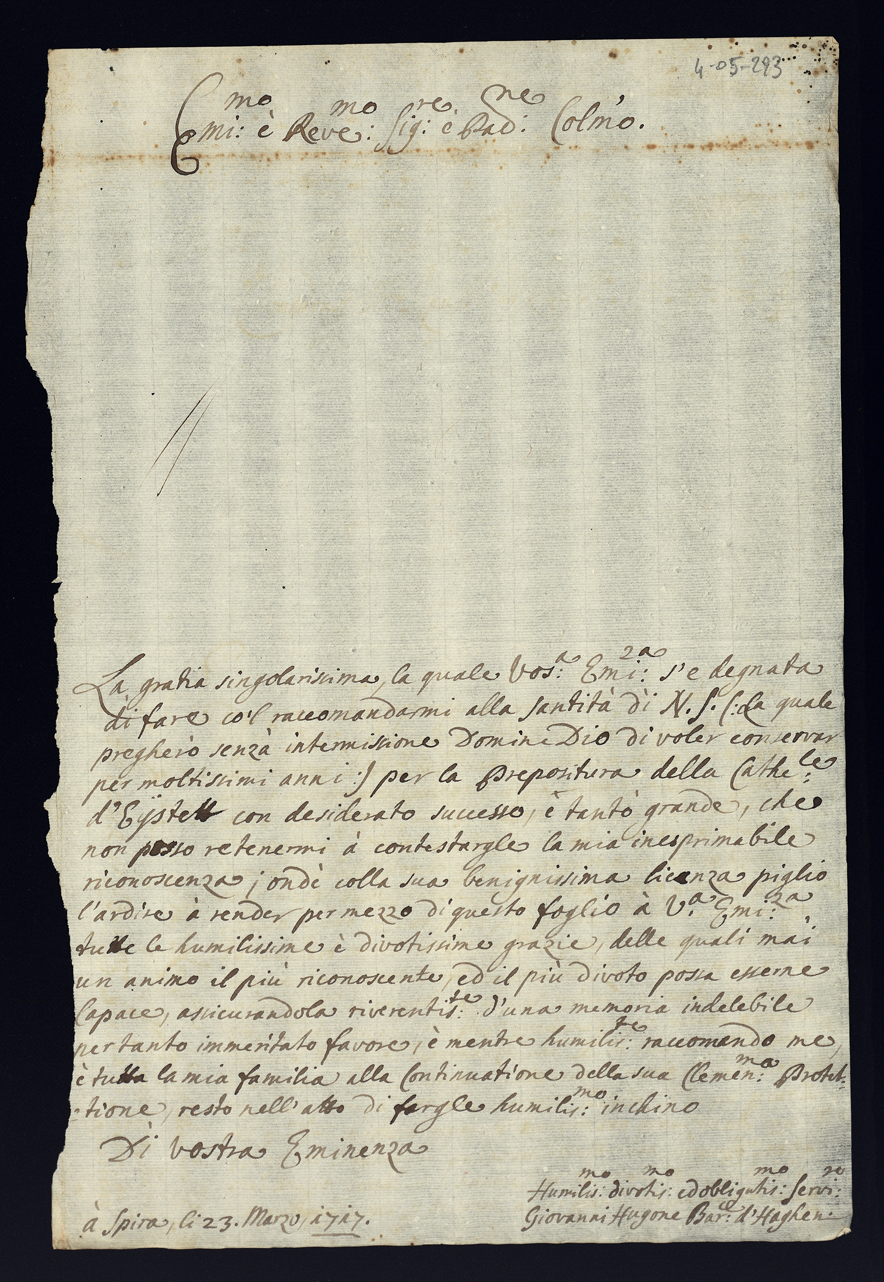 4-05-293
Emi:mo è Reve:mo Sig:re è Pad:ne Colmo.
La gratia singolarissima, la quale Vos:a Emi:za s'e degnata
di fare co'l raccomandarmi alla santità di N. S. (:la quale
pregherò senzà intermissione Domine Dio di voler conservar
per moltissimi anni :) per la Prepositura della Cathe:le
d'Eÿstett con desiderato successo, è tantò grande, che
non posso retenermi à contestargle la mia inesprimabile
riconoscenza; ondè colla sua benignissima licenza piglio
l'ardire à render per mezzo di questo foglio à V:a Emi:za
tutte le humilissime è divotissime grazie, delle quali mai
un animo il più riconoscente, ed il più divoto possa esserne
Capace, assicurandola riverentis:te d'una memoria indelebile
per tanto immeritato favore, è mentre humilis:te raccomando me,
è tutta la mia familia alla Continuatione della sua Clemen:ma Protet-
:tione, resto nell'atto di fargle humilis:mo inchino
Di Vostra Eminenza
Humilis:mo divotis:mo ed obligatis:mo Servi:re
à Spira, li 23. Marzo, 1717.
Giovanni Hugone Bar:e d'Haghen.